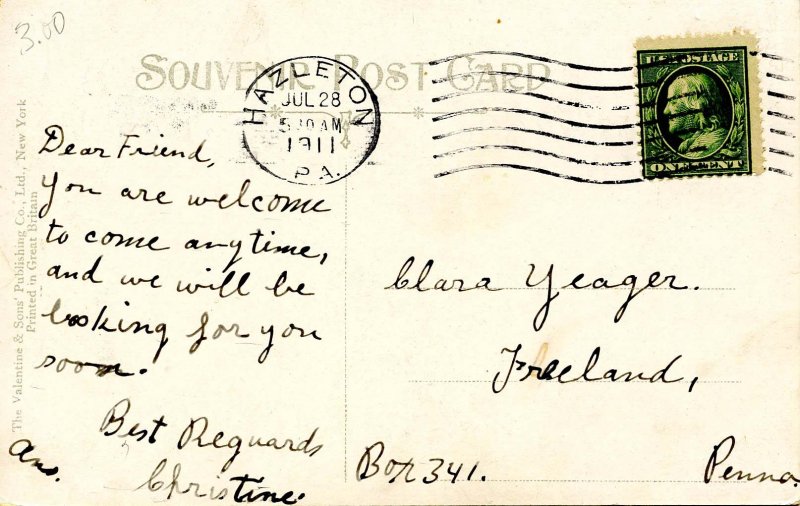 3.00
SOUVENIR POST CARD
HAZLETON
JUL 28
5 30 AM
1911
PA.
U.S. POSTAGE
ONE CENT
The Valentine & Sons' Publishing Co., Ltd., New York
Printed in Great Britain
Dear Friend,
You are welcome
to come anytime,
and we will be
looking for you
soon.
Best Reguards
Christine.
Ans.
Clara Yeager.
Freeland,
Box 341.
Penna.